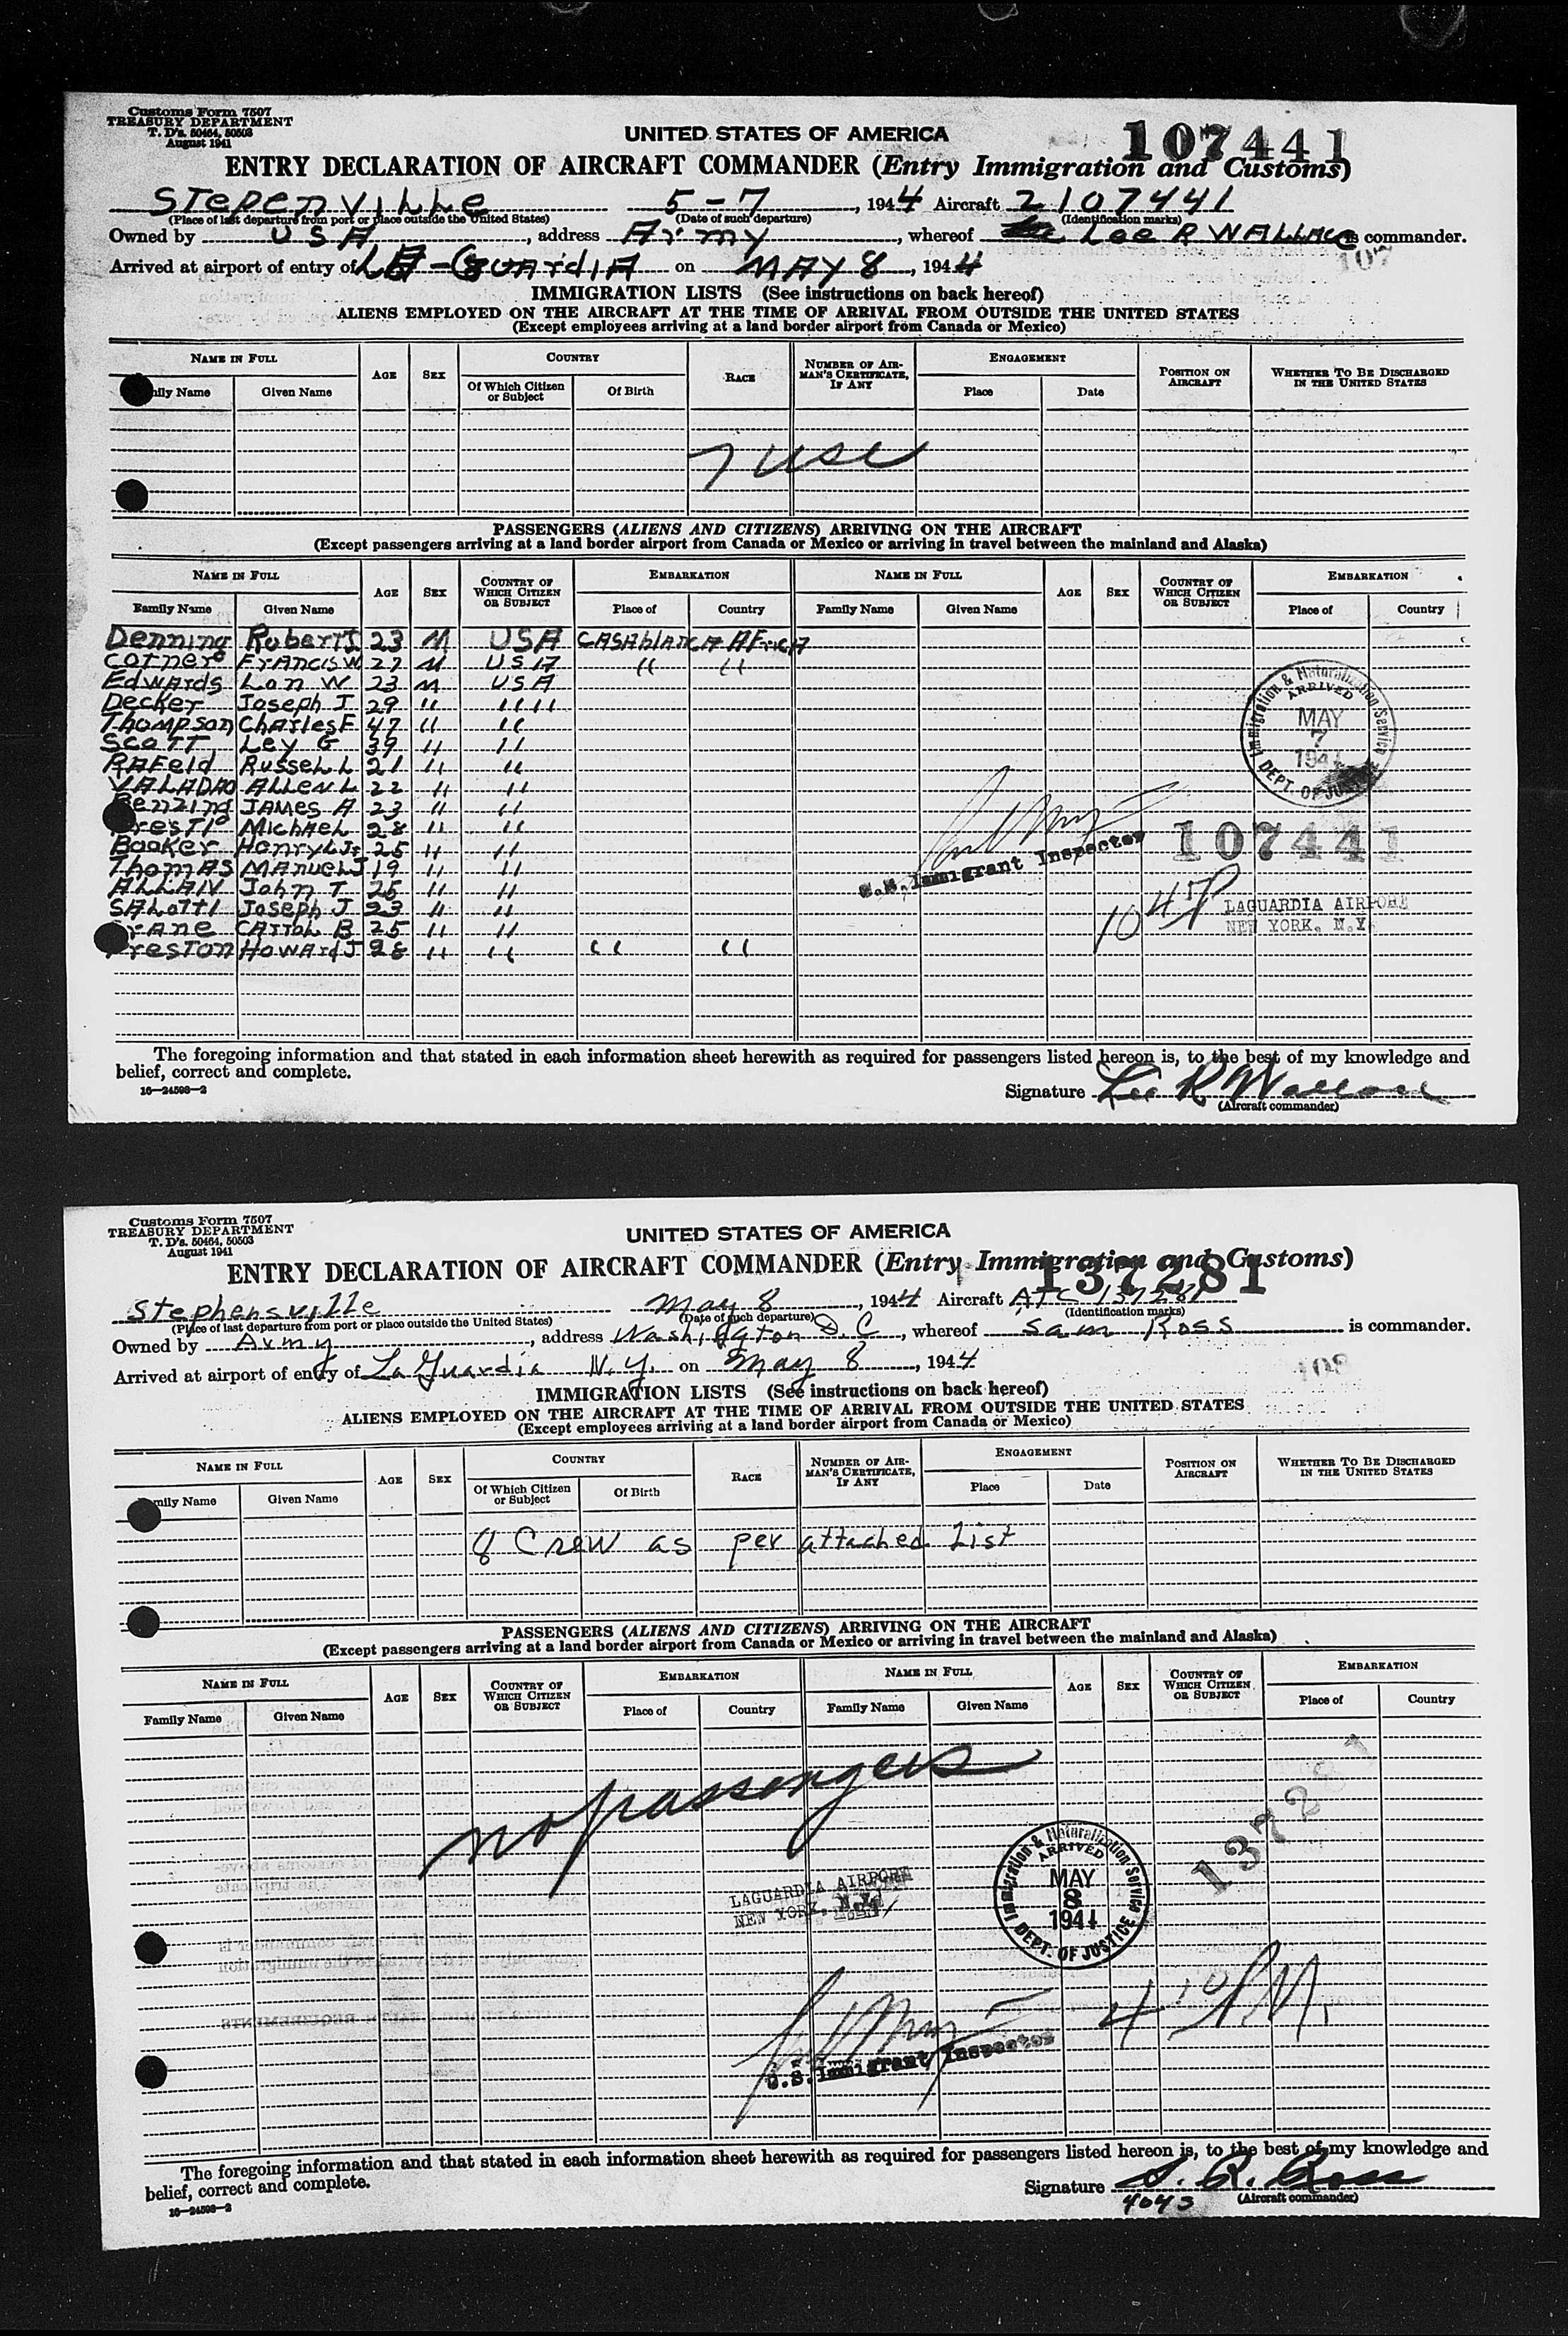 Customs Form 7507
TREASURY DEPARTMENT
T. D's. 50464, 50503
August 1941
UNITED STATES OF AMERICA
107441
ENTRY DECLARATION OF AIRCRAFT COMMANDER (Entry Immigration and Customs)
STEPENVILLE 5-7, 1944 Aircraft 2107441
(Place of last departure from port or place outside the United States) (Date of such departure) (Identification marks)
Owned by USA, address Army, whereof Lee R WALLACE is commander.
107
Arrived at airport of entry of LA-GUARdIA on MAY 8, 1944
IMMIGRATION LISTS (See instructions on back hereof)
ALIENS EMPLOYED ON THE AIRCRAFT AT THE TIME OF ARRIVAL FROM OUTSIDE THE UNITED STATES
(Except employees arriving at a land border airport from Canada or Mexico)
NAME IN FULL AGE SEX COUNTRY RACE NUMBER OF AIRMAN'S CERTIFICATE, IF ANY ENGAGEMENT POSITION ON AIRCRAFT WHETHER TO BE DISCHARGED IN THE UNITED STATES
Family Name Given Name Of Which Citizen or Subject Of Birth Place Date
7 use
PASSENGERS (ALIENS AND CITIZENS) ARRIVING ON THE AIRCRAFT
(Except passengers arriving at a land border airport from Canada or Mexico or arriving in travel between the mainland and Alaska)
NAME IN FULL AGE SEX COUNTRY OF WHICH CITIZEN OR SUBJECT EMBARKATION NAME IN FULL AGE SEX COUNTRY OF WHICH CITIZEN OR SUBJECT EMBARKATION
Family Name Given Name Place of Country Family Name Given Name Place of Country
Denning Robert J 23 M USA CASAblANCA AFricA
Corner Francis W 27 M USA " "
Edwards Lon W 23 M USA
Decker Joseph J 29 " " "
Thompson Charles F 47 " "
Scott Ley G 39 " "
RAFeld Russell L 21 " "
VALADAO ALLEN L 22 " "
Benzing JAMES A 23 " "
resti Michael 28 " "
Booker Henry L Jr 25 " "
Thomas MANuel J 19 " "
ALLAIN John T 25 " "
SALotti Joseph J 23 " "
rane Carrol B 25 " "
reston Howard J 28 " " " "
Immigration & Naturalization Service
ARRIVED
MAY
7
1944
DEPT. OF JUSTICE
U.S. Immigrant Inspector
107441
10 45P
LAGUARDIA AIRPORE
NEW YORK, N.Y.
The foregoing information and that stated in each information sheet herewith as required for passengers listed hereon is, to the best of my knowledge and
belief, correct and complete.
16—24598-2
Signature Lee R Wallace
(Aircraft commander)
Customs Form 7507
TREASURY DEPARTMENT
T. D's. 50464, 50503
August 1941
UNITED STATES OF AMERICA
137281
ENTRY DECLARATION OF AIRCRAFT COMMANDER (Entry Immigration and Customs)
Stephensville May 8, 1944 Aircraft ATC 137281
(Place of last departure from port or place outside the United States) (Date of such departure) (Identification marks)
Owned by Army, address Washington D.C, whereof Sam Ross is commander.
108
Arrived at airport of entry of La Guardia N.Y. on May 8, 1944
IMMIGRATION LISTS (See instructions on back hereof)
ALIENS EMPLOYED ON THE AIRCRAFT AT THE TIME OF ARRIVAL FROM OUTSIDE THE UNITED STATES
(Except employees arriving at a land border airport from Canada or Mexico)
NAME IN FULL AGE SEX COUNTRY RACE NUMBER OF AIRMAN'S CERTIFICATE, IF ANY ENGAGEMENT POSITION ON AIRCRAFT WHETHER TO BE DISCHARGED IN THE UNITED STATES
Family Name Given Name Of Which Citizen or Subject Of Birth Place Date
8 Crew as per attached List
PASSENGERS (ALIENS AND CITIZENS) ARRIVING ON THE AIRCRAFT
(Except passengers arriving at a land border airport from Canada or Mexico or arriving in travel between the mainland and Alaska)
NAME IN FULL AGE SEX COUNTRY OF WHICH CITIZEN OR SUBJECT EMBARKATION NAME IN FULL AGE SEX COUNTRY OF WHICH CITIZEN OR SUBJECT EMBARKATION
Family Name Given Name Place of Country Family Name Given Name Place of Country
no passengers
137281
LAGUARDIA AIRPORE
NEW YORK, N.Y.
Immigration & Naturalization Service
ARRIVED
MAY
8
1944
DEPT. OF JUSTICE
4 10 P.M.
U.S. Immigrant Inspector
The foregoing information and that stated in each information sheet herewith as required for passengers listed hereon is, to the best of my knowledge and
belief, correct and complete.
16—24598-2
Signature S. R. Ross
4043 (Aircraft commander)